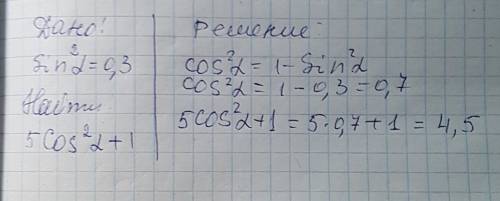 Дано:
sin²α=0,3
Найти
5cos²α+1
Решение:
cos²α=1-Sin²α
cos²α=1-0,3=0,7
5cos²α+1=5·0,7+1=4,5